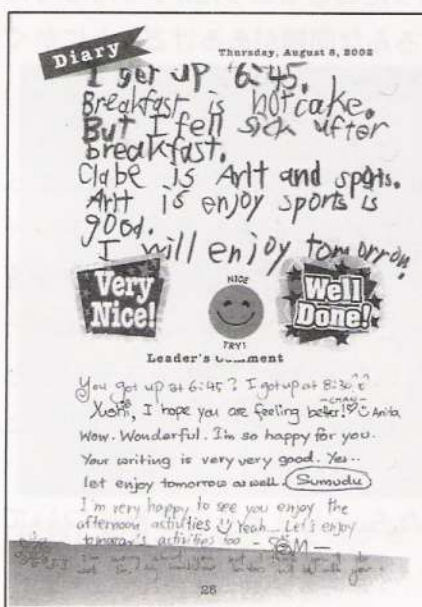 Diary
Thursday, August 8, 2002
I get up 6:45.
Breakfast is hotcake.
But I fell sick after
breakfast.
Clabe is Artt and spots.
Artt is enjoy sports is
good.
I will enjoy tomorrow.
Very Nice!
NICE TRY!
Well Done!
Leader's Comment
You got up at 6:45? I got up at 8:30
-CHAN-
Yushi, I hope you are feeling better! Anita
Wow. Wonderful. I'm so happy for you.
Your writing is very very good. Yes..
let enjoy tomorrow as well. Sumudu
I'm very happy to see you enjoy the
afternoon activities Yeah... Let's enjoy
tomorrow's activities too
28